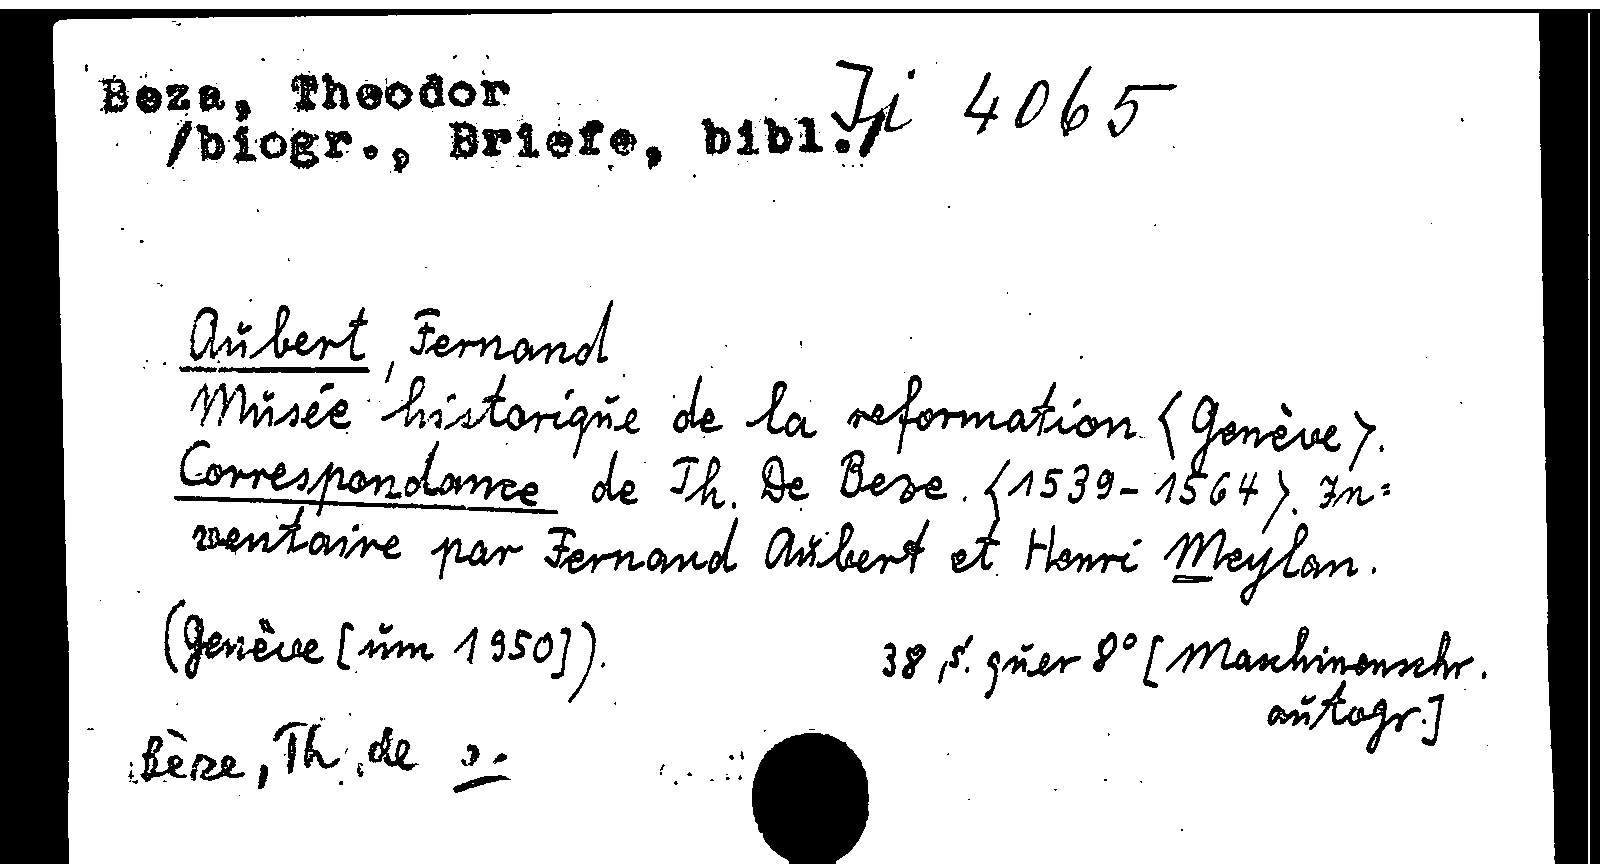 Beza, Theodor
Ji 4065
/biogr., Briefe, bibl./
Aubert, Fernand
Musée historique de la reformation <Genève>.
Correspondance de Th. De Beze. <1539-1564>. In=
ventaire par Fernand Aubert et Henri Meylan.
(Genève [um 1950]).
38 S. quer 8° [Maschinenschr.
autogr.]
Bèze, Th. de